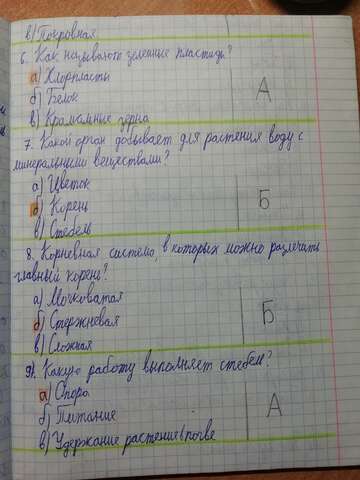 в) Покровная
6. Как называют зеленые пластиды?
а) Хлорпласты
б) Белок
А
в) Крахмальные зерна
7. Какой орган добывает для растения воду с
минеральными веществами?
а) Цветок
б) Корень
Б
в) Стебель
8. Корневная система, в которых можно разлечить
главный корень?
а) Мочковатая
б) Стержневая
Б
в) Сложная
9. Какую работу выполняет стебель?
а) Опора
б) Питание
А
в) Удержание растение(почве